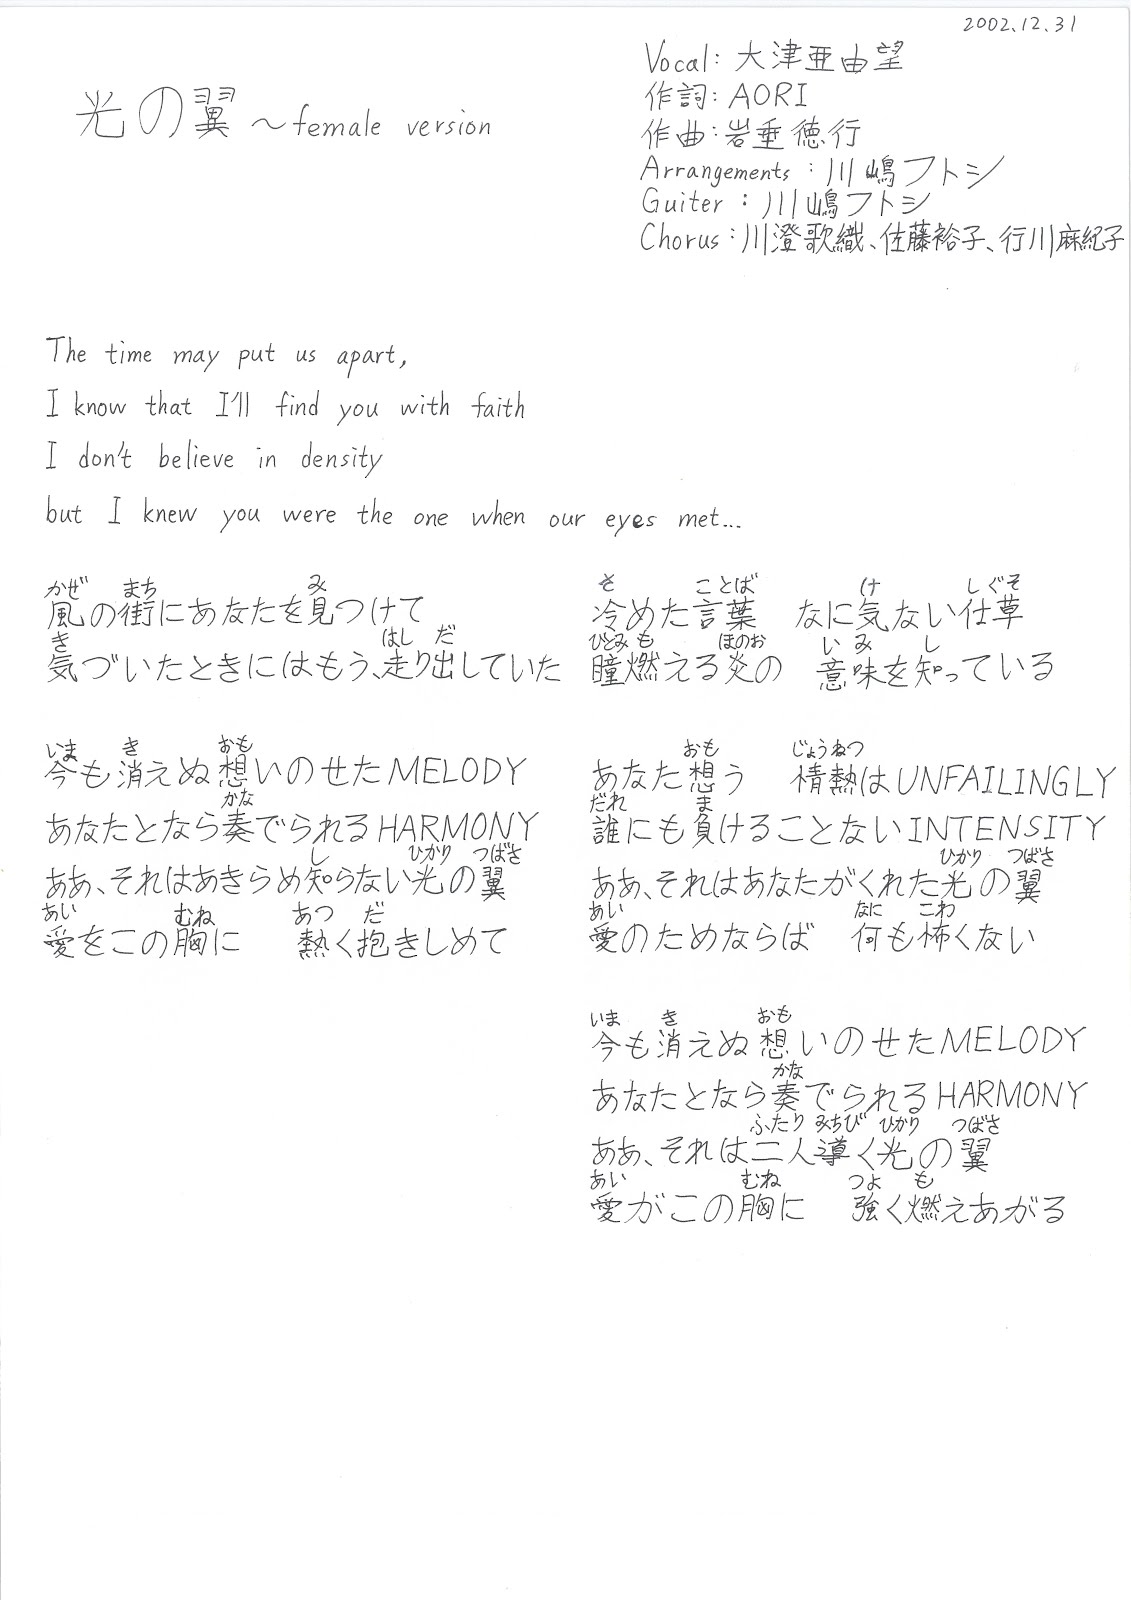 2002.12.31
光の翼 ～female version
Vocal: 大津亜由望
作詞: AORI
作曲: 岩垂徳行
Arrangements : 川嶋フトシ
Guiter : 川嶋フトシ
Chorus: 川澄歌織、佐藤裕子、行川麻紀子
The time may put us apart,
I know that I'll find you with faith
I don't believe in density
but I knew you were the one when our eyes met...
かぜ まち み
風の街にあなたを見つけて
き はし だ
気づいたときにはもう、走り出していた
いま き おも
今も消えぬ想いのせたMELODY
かな
あなたとなら奏でられるHARMONY
し ひかり つばさ
ああ、それはあきらめ知らない光の翼
あい むね あつ だ
愛をこの胸に 熱く抱きしめて
さ ことば け しぐそ
冷めた言葉 なに気ない仕草
ひとみ も ほのお い み し
瞳燃える炎の 意味を知っている
おも じょうねつ
あなた想う 情熱はUNFAILINGLY
だれ ま
誰にも負けることないINTENSITY
ひかり つばさ
ああ、それはあなたがくれた光の翼
あい なに こわ
愛のためならば 何も怖くない
いま き おも
今も消えぬ想いのせたMELODY
かな
あなたとなら奏でられるHARMONY
ふたり みちび ひかり つばさ
ああ、それは二人導く光の翼
あい むね つよ も
愛がこの胸に 強く燃えあがる